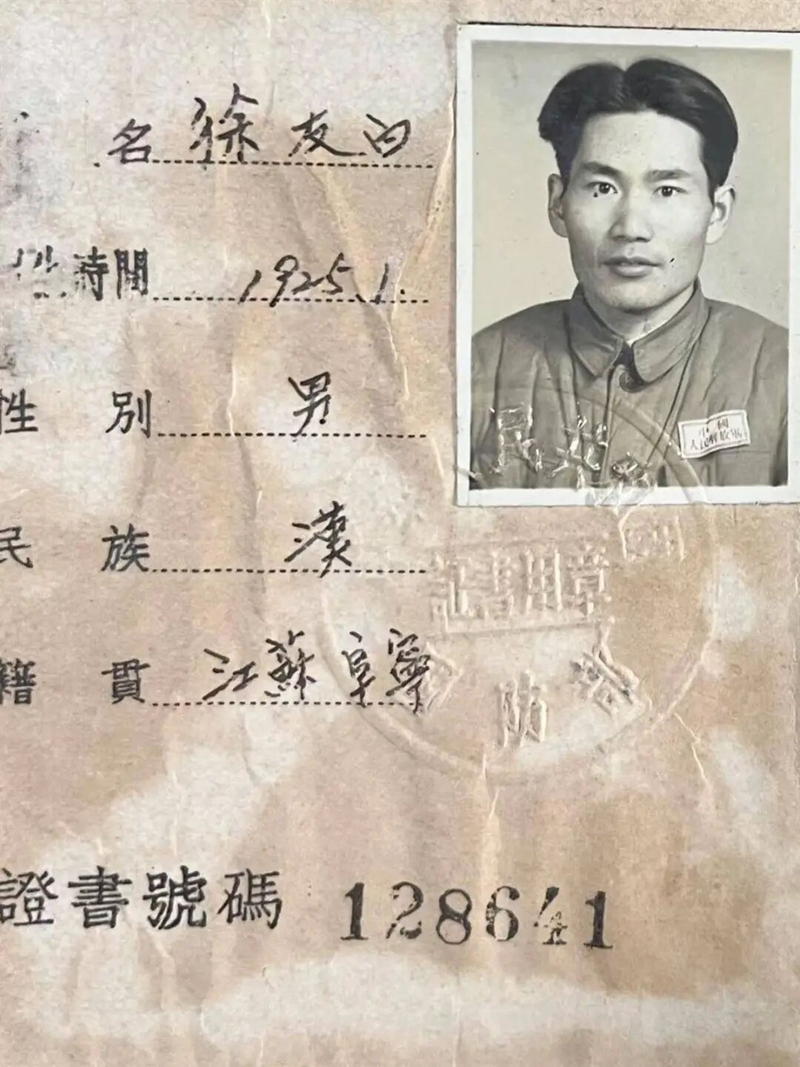 名 徐友白
時間 1925.1.
性 別 男
民 族 漢
籍 貫 江蘇阜寧
證書號碼 128641
中國
人民解放軍
證書用章